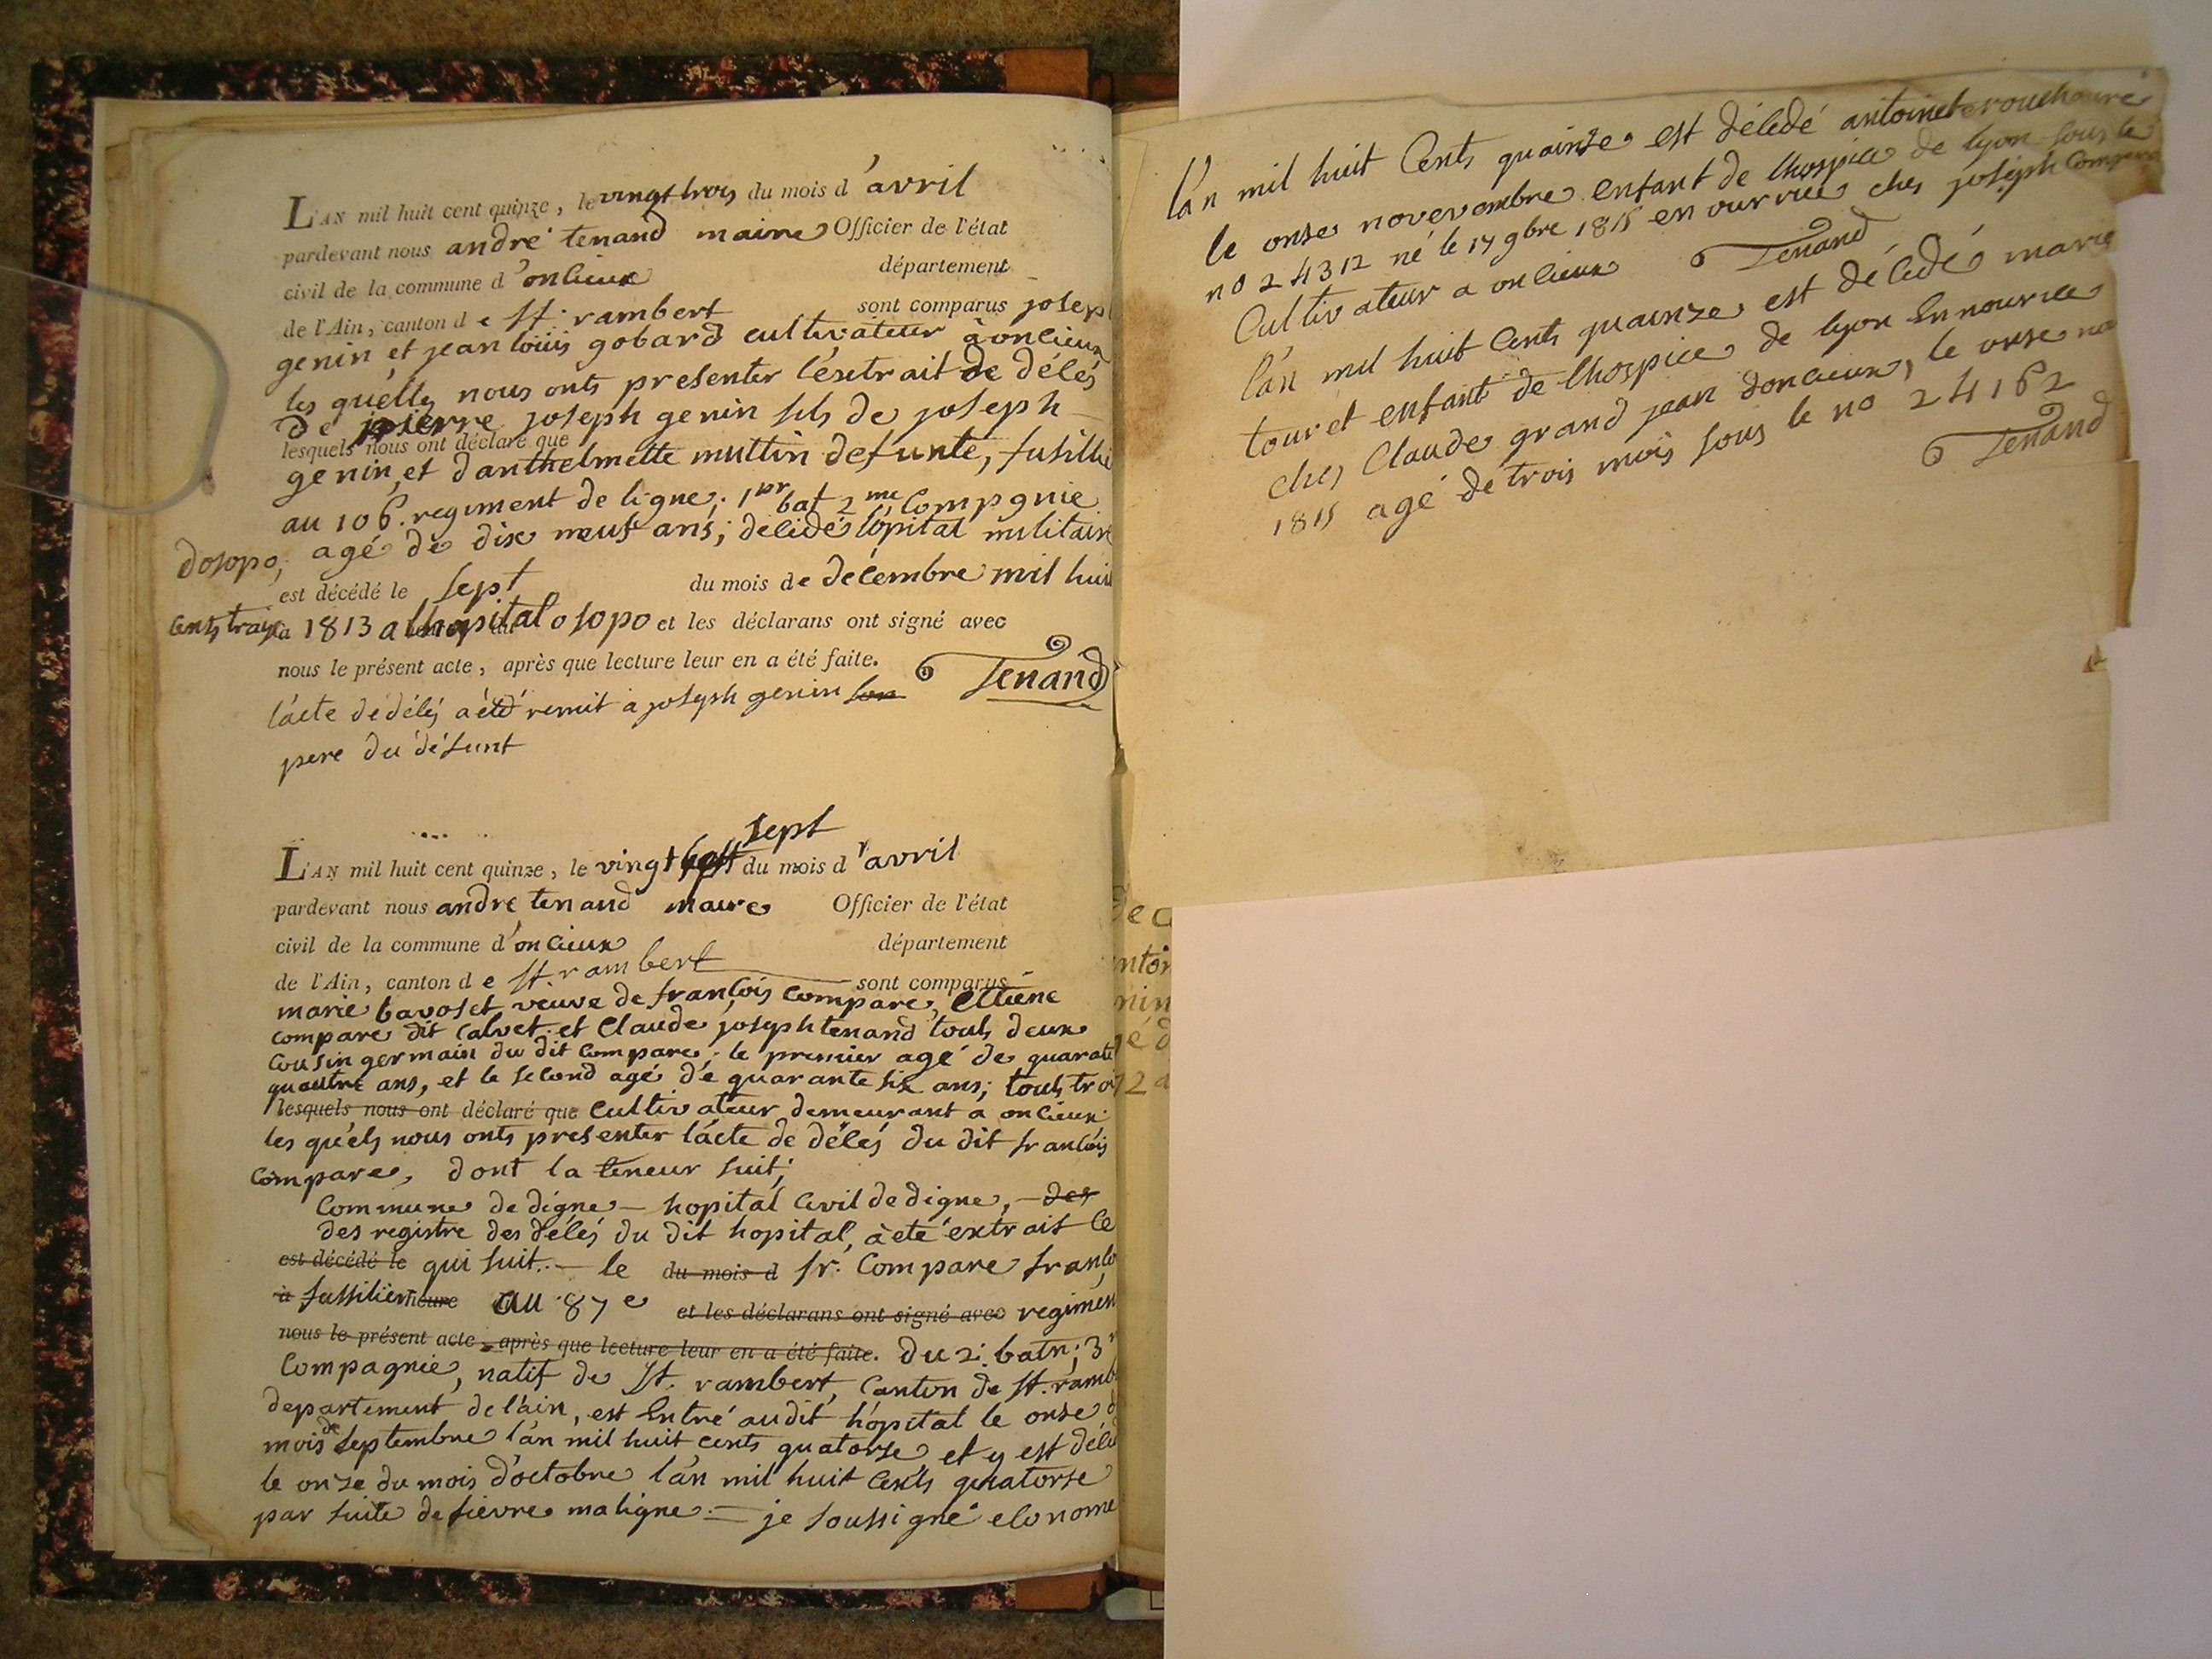 L'AN mil huit cent quinze, le vingt trois du mois d'avril
pardevant nous andré tenand maire Officier de l'état
civil de la commune d'onlieux département
de l'Ain, canton de St. rambert sont comparus josep
genin et jean louis gobard cultivateur a onlieux
les quelles nous onts presenter l'extrait de délés
De pierre joseph genin fils de joseph
lesquels nous ont déclaré que
genin, et danthelmette muttin defunte, fusillie
au 106. regiment de ligne; 1er bat 2me Compgnie
dosopo, agé de dix neuf ans; delédé lôpital militaire
est décédé le sept du mois de décembre mil hui
Cents traize à 1813 a lhopital osopo et les déclarans ont signé avec
nous le présent acte, après que lecture leur en a été faite.
Tenand
lácte dédélés a été remit a joseph genin son
pere du défunt
sept
L'AN mil huit cent quinze, le vingt du mois d'avril
pardevant nous andré tenand maire Officier de l'état
civil de la commune d'onlieux département
de l'Ain, canton de St. rambert sont comparus
marie bavoset veuve de franlois Compare, ettiéne
compare dit Calvet et Claude joseph tenand touts deux
Cousin germain du dit Compare; le premier agé de quarate
quautre ans, et le second agé dé quarante six ans; touts troi
lesquels nous ont déclaré que Cultivateur demeurant a onlieux
les quéls nous onts presenter lácte de délés du dit franlois
Compare, dont la teneur suit;
Commune de digne — hopital Civil de digne, — des
des registre des délés du dit hopital, à eté extrait Ce
est décédé le qui suit. — le du mois d sr. Compare franlo
à fussilier heure au 87e et les déclarans ont signé avec regimen
nous le présent acte, après que lecture leur en a été faite. du 2. batn; 3
Compagnie, natif de St. rambert, Canton de St. ramb
departement de láin, est Entré audit hópital le onze d
mois de septembre lán mil huit cents quatorse et y est déléd
le onze du mois doctobre lán mil huit Cents quatorse
par suite de fievre maligne. — je soussigné elonome
lán mil huit Cents quainse est délédé antoinet
le onse novevembre enfant de lhospice de lyon sous le
no 24312 né le 17 9bre 1815 en ourrice ches joseph Compare
Cultivateur a onlieux Tenand
lán mil huit Cents quainse est délédé marie
touret enfant de lhospice de lyon En nourice
ches Claude grand jean donlieux, le onse no
1815 agé de trois mois sous le no 24162
Tenand